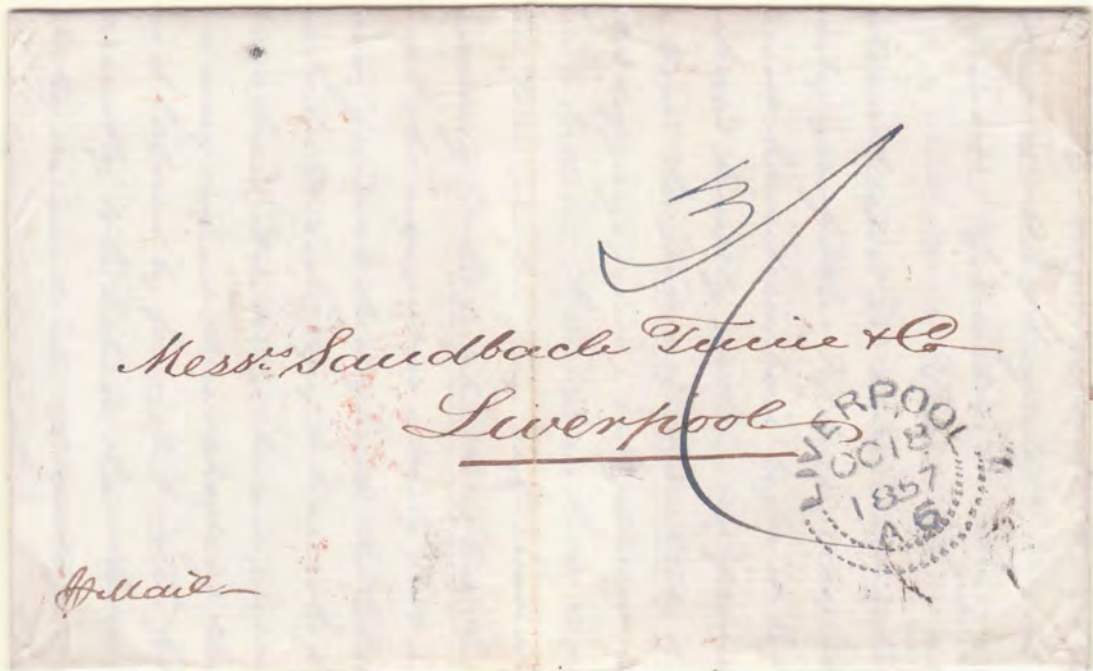 3/
Messrs Sandbach Tinne & Co
Liverpool
LIVERPOOL
OC 18
1857
A 6
Mail